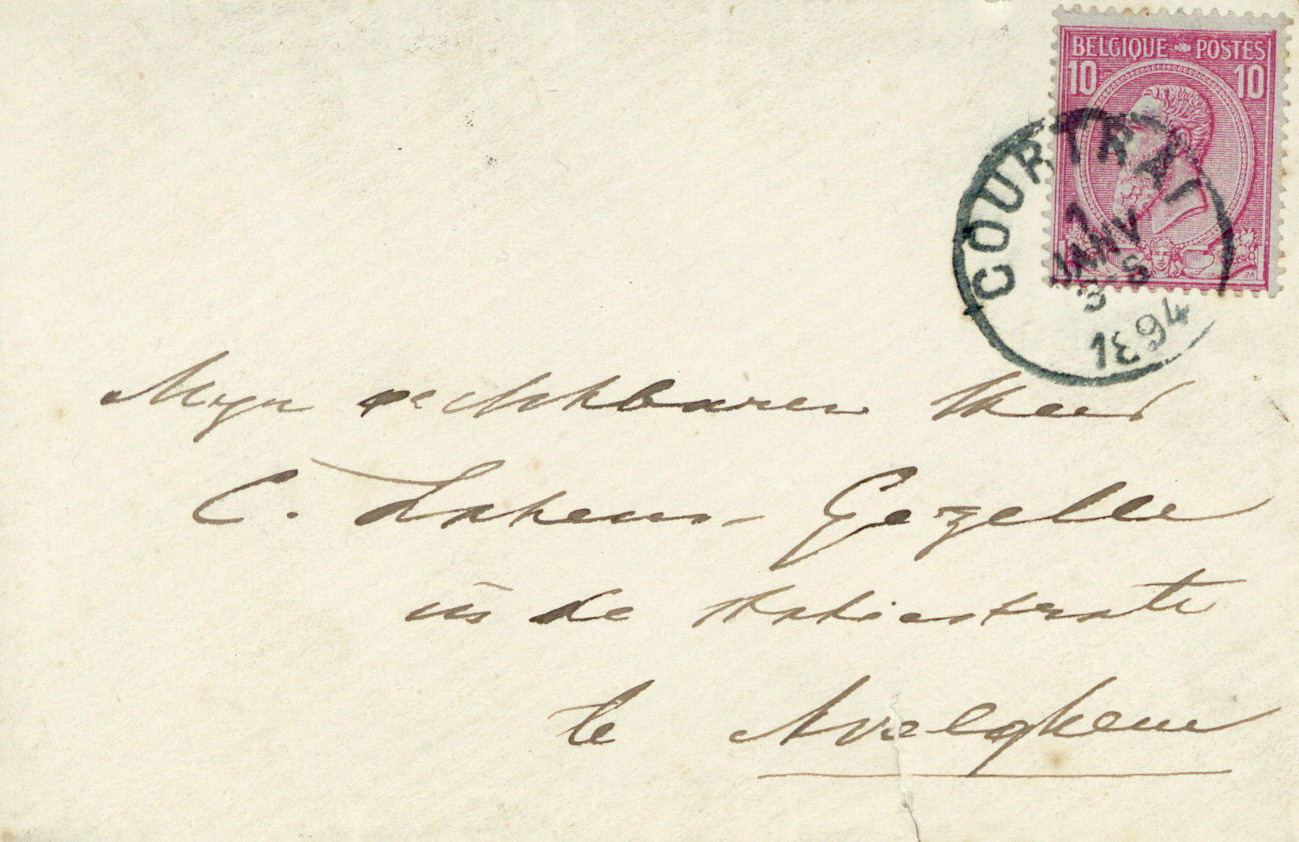 BELGIQUE POSTES
10 10
COURTRAI
1
JANV
3-S
1894
Mijn achtbaren Heer
C. Lateur-Gezelle
in de Statiestrate
te Avelghem